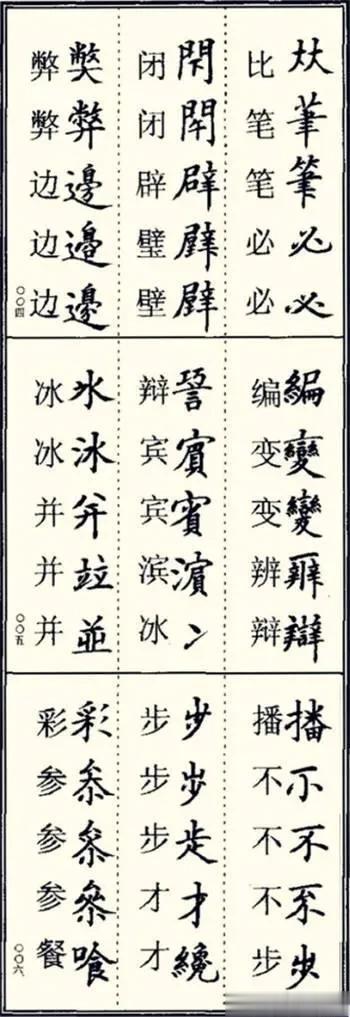 夶茟筆必必
比笔笔必必
閇
闭闭辟璧壁
獘弊邊邉邊
弊弊边边边
〇〇四
編變變辯
编变变辨辩
賔賓濵冫
辩宾宾滨冰
氷冰并竝並
冰冰并并并
〇〇五
播不不步
播不不不步
步步才纔
步步步才才
彩叅叅參喰
彩参参参餐
〇〇六